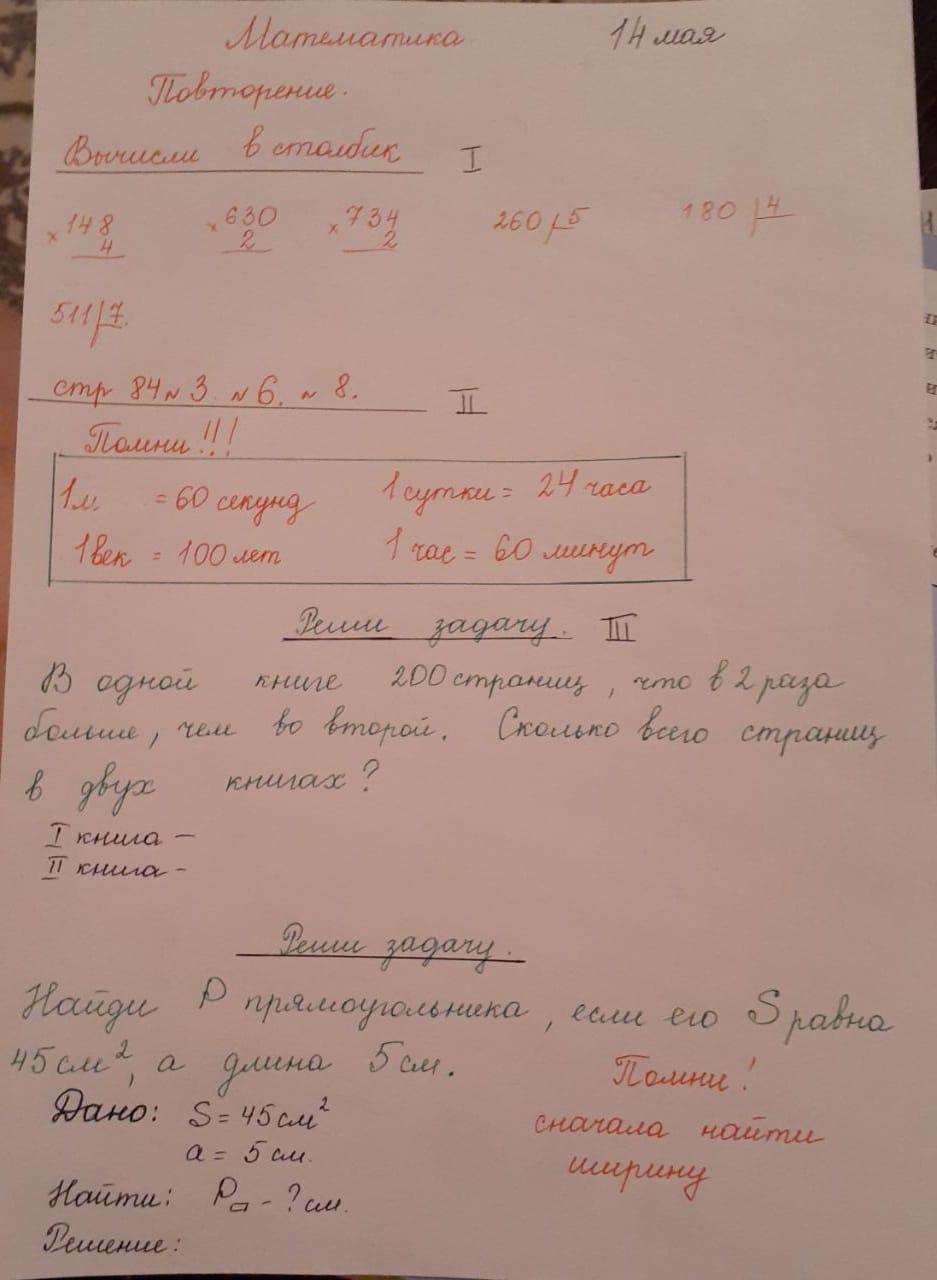 Математика 14 мая
Повторение.
Вычисли в столбик I
× 148 × 630 × 734 260 5 180 4
4 2 2
511 7.
стр 84 № 3. № 6. № 8. II
Помни!!!
1м. = 60 секунд 1 сутки = 24 часа
1 век = 100 лет 1 час = 60 минут
Реши задачу. III
В одной книге 200 страниц, что в 2 раза
больше, чем во второй. Сколько всего страниц
в двух книгах?
I книга –
II книга –
Реши задачу.
Найди P прямоугольника, если его S равна
45 см², а длина 5 см.
Помни!
Дано: S = 45 см²
сначала найти
a = 5 см.
ширину
Найти: P▭ - ? см.
Решение: